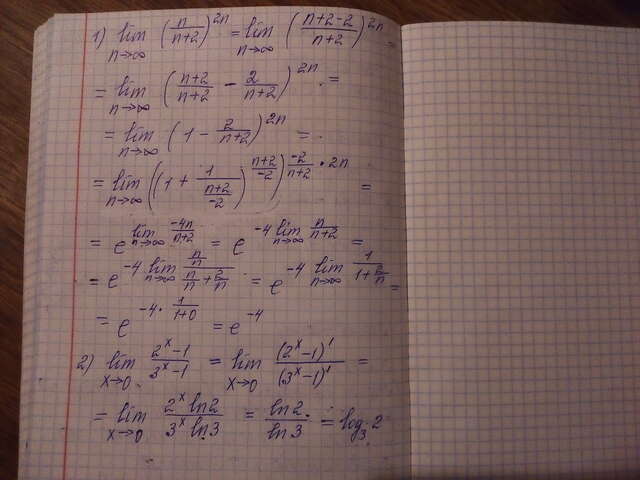 1) lim n→∞ (n/(n+2))^2n = lim n→∞ ((n+2-2)/(n+2))^2n =
= lim n→∞ ((n+2)/(n+2) - 2/(n+2))^2n =
= lim n→∞ (1 - 2/(n+2))^2n =
= lim n→∞ ((1 + 1/((n+2)/-2))^((n+2)/-2))^(-2/(n+2) · 2n) =
= e^(lim n→∞ -4n/(n+2)) = e^(-4 lim n→∞ n/(n+2)) =
= e^(-4 lim n→∞ (n/n)/(n/n + 2/n)) = e^(-4 lim n→∞ 1/(1 + 2/n)) =
= e^(-4 · 1/(1+0)) = e^-4
2) lim x→0 (2^x - 1)/(3^x - 1) = lim x→0 (2^x - 1)'/(3^x - 1)' =
= lim x→0 (2^x ln 2)/(3^x ln 3) = ln 2/ln 3 = log_3 2